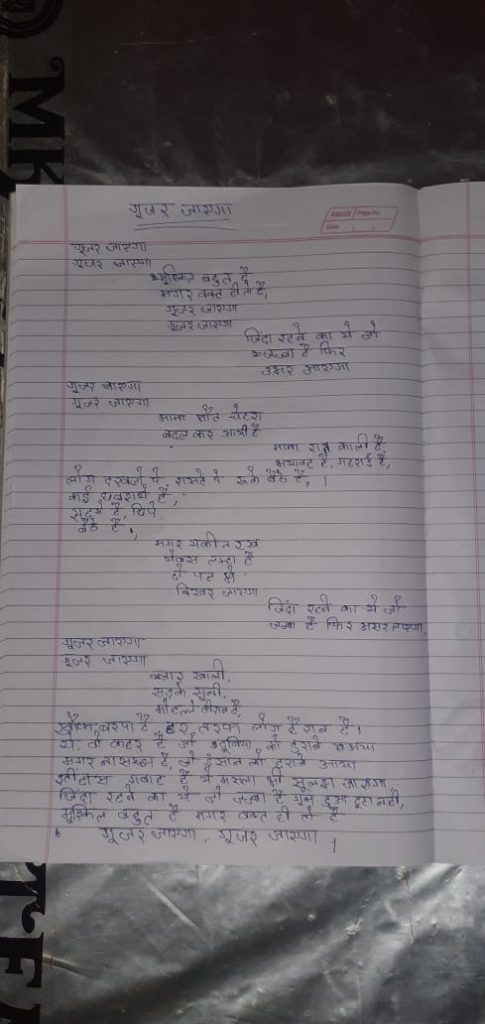 गुजर जाएगा
गुजर जाएगा
गुजर जाएगा
मुश्किल बहुत है
मगर वक्त ही तो है,
गुजर जाएगा
गुजर जाएगा
जिंदा रहने का ये जो
जज्बा है फिर
उभर आएगा
गुजर जाएगा
गुजर जाएगा
माना मौत चेहरा
बदल कर आयी है
माना रात काली है,
भयावह है, गहराई है,
लोग दरवाजो पे, रास्तो पे रूके बैठे है,
कई घबराये है,
सहमे है, छिपे
बैठे है,
मगर यकीन रख
ये बस लम्हा है
दो पल में
बिखर जाएगा
जिंदा रहने का ये जो
जज्बा है फिर असर लाएगा,
गुजर जाएगा
गुजर जाएगा
बाजार खाली,
सड़के सुनी,
मोहल्ले वीरान है,
खौफ बरपा है हर तरफ लोग हैरान है।
ये वो कहर है जो दुनिया को डुराने आया
मगर नासमझ है, जो इंसान को हराने आया
इतिहास गवाह है ये मसला भी सुलझ जाएगा,
जिंदा रहने का ये जो जज्बा है गुम हुआ टूटा नही,
मुश्किल बहुत है मगर वक्त ही तो है
गुजर जाएगा, गुजर जाएगा।
MK